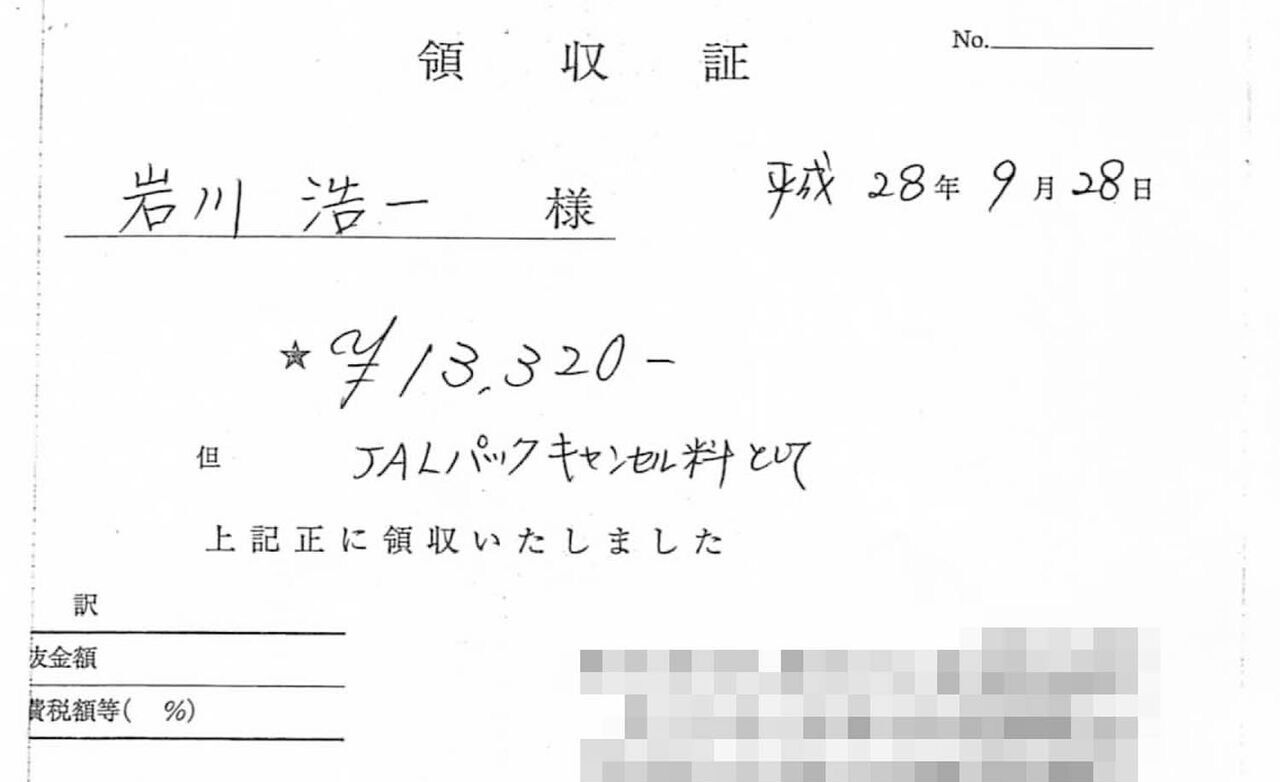 領収証
No.
岩川 浩一 様
平成 28年 9月 28日
★ ¥13,320-
但 JALパックキャンセル料として
上記正に領収いたしました
訳
抜金額
費税額等( %)